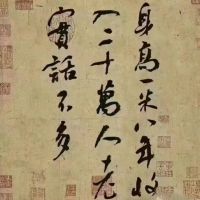 身高一米八年收
入二十萬人老
實話不多